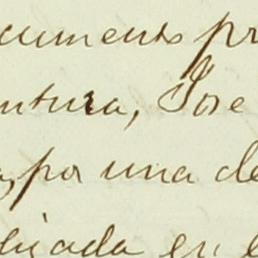 cumento pr
ntura, Jose
, por una de
licada en e